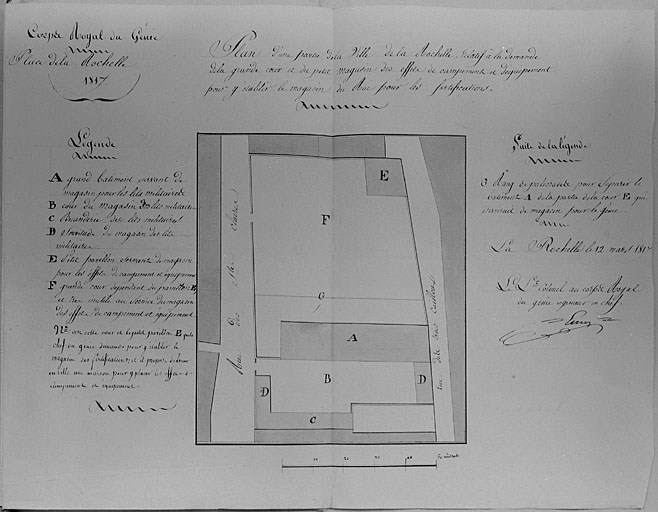 Corps Royal du Génie
Place de la Rochelle
1817
Plan d'une partie de la Ville de la Rochelle relatif à la demande
de la grande cour et du petit magasin des effets de campement et d'equipement
pour y établir le magasin du pour les fortifications.
Légende
A grand batiment servant de
magasin pour les lits militaires
B cour du magasin des lits militaires
C Buanderie des lits militaires
D du magasin des lits
militaires
E Petit pavillon servant de magasin
pour les effets de campement et equipement
F grande cour dependant du pavillon E
et inutile au service du magasin
des effets de campement et equipement
Nta cette cour et le petit pavillon E que le
chef du genie demande pour y établir le
magasin des fortifications, et il propose de louer
en ville une maison pour y placer les effets de
campement et equipement.
Suite de la légende
G Rang de palissades pour séparer le
batiment A de la partie de la cour E qui
servirait de magasin pour le génie.
La Rochelle le 12 mars 1817
Le Lt Colonel au corps Royal
du genie ingenieur en chef
E
F
G
A
B
C
D
D
Rue des
rue de la
10 20 30 40 50